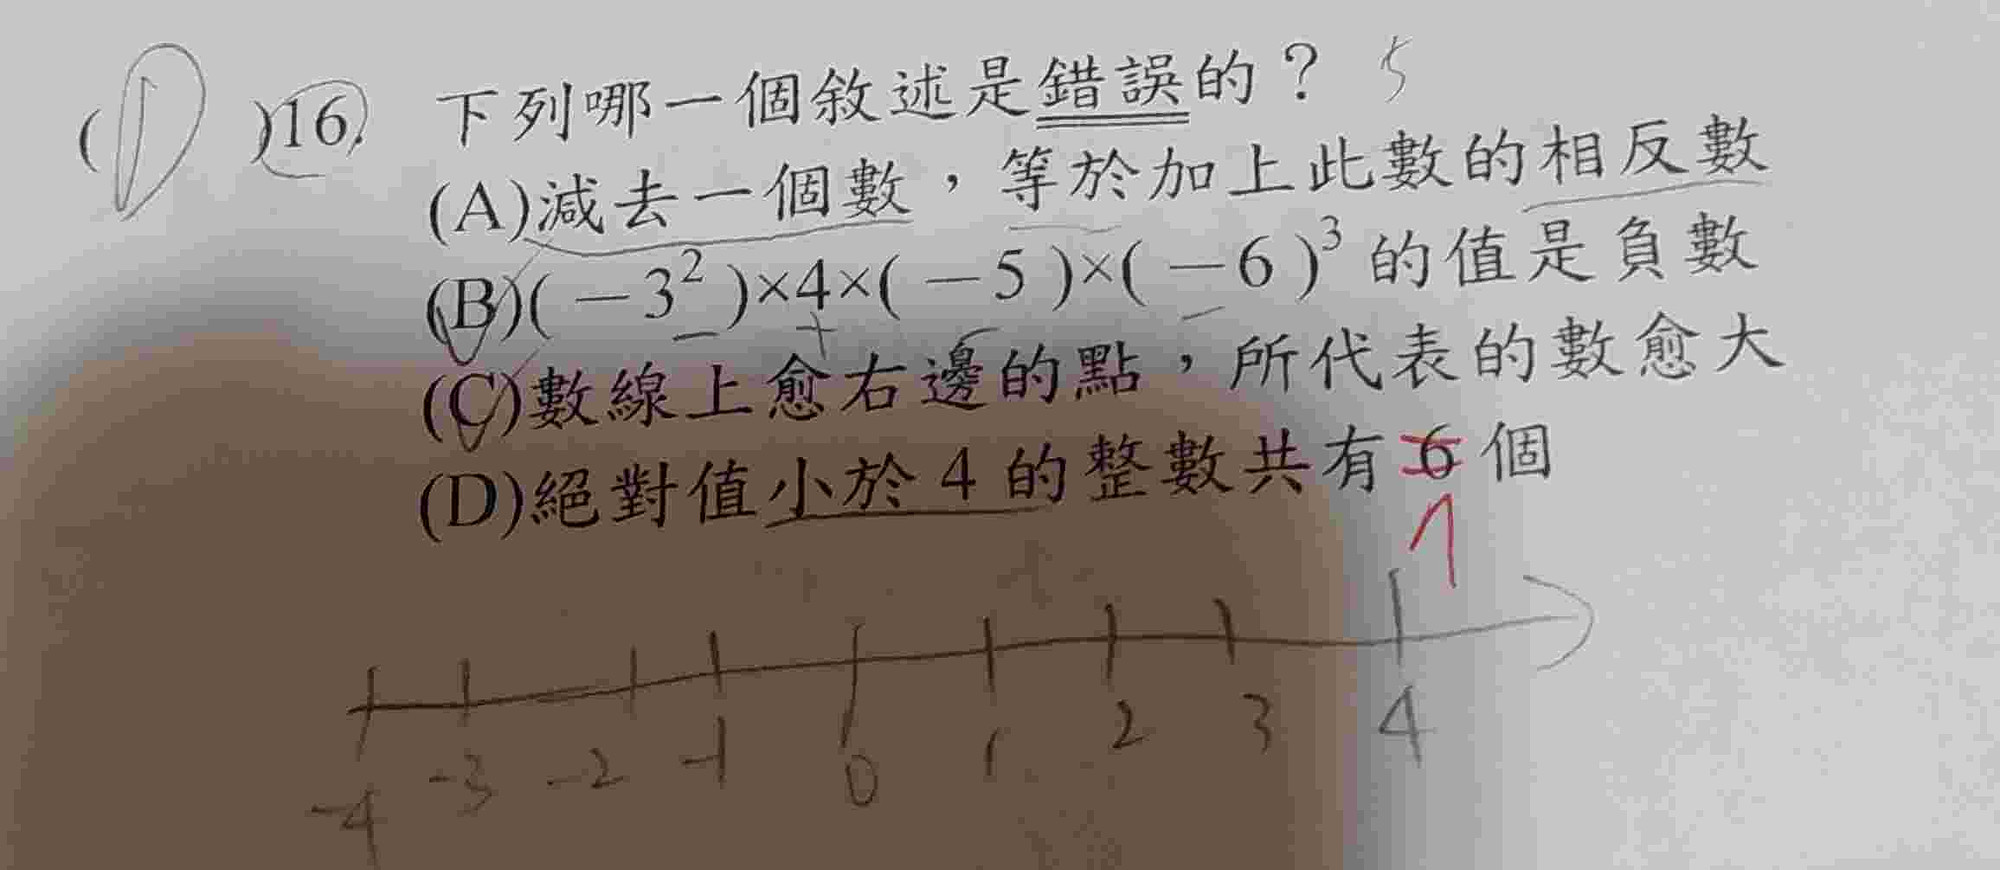 (D)16. 下列哪一個敘述是錯誤的？ 5
(A)減去一個數，等於加上此數的相反數
(B)(－3²)×4×(－5)×(－6)³的值是負數
－ + － －
(C)數線上愈右邊的點，所代表的數愈大
(D)絕對值小於4的整數共有6個
7
-4 -3 -2 -1 0 1 2 3 4